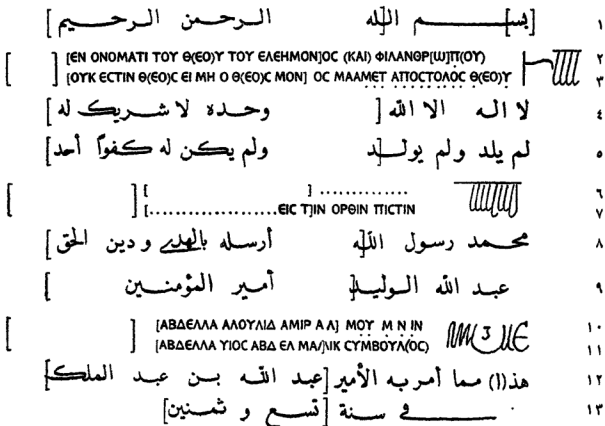 ١ [بسـ]ـم اللـ[ـه الرحمن الرحيم]
٢ [ΕΝ ΟΝΟΜΑΤΙ ΤΟΥ Θ(ΕΟ)Υ ΤΟΥ ΕΛΕΗΜΟΝ]ΟC (ΚΑΙ) ΦΙΛΑΝΘΡ[Ω]Π(ΟΥ)
٣ [ΟΥΚ ΕCΤΙΝ Θ(ΕΟ)C ΕΙ ΜΗ Ο Θ(ΕΟ)C ΜΟΝ] ΟC ΜΑΑΜΕΤ ΑΠΟCΤΟΛΟC Θ(ΕΟ)Υ
٤ لا اله الا الله [وحده لا شريك له]
٥ لم يلد ولم يولـ[ـد ولم يكن له كفوًا أحد]
٦ [ ] ..............
٧ [....................ΕΙC Τ]ΙΝ ΟΡΘΙΝ ΠΙCΤΙΝ
٨ محمد رسول اللـ[ـه أرسله بالهدى و دين الحق]
٩ عبد الله الوليـ[ـد أمير المؤمنين]
١٠ [ΑΒΔΕΛΛΑ ΑΛΟΥΛΙΔ ΑΜΙΡ Α Λ] ΜΟΥ Μ Ν ΙΝ
١١ [ΑΒΔΕΛΛΑ ΥΙΟC ΑΒΔ ΕΛ ΜΑ/]ΛΙΚ CΥΜΒΟΥΛ(ΟC)
١٢ هذ(ا) مما أمر به الأمير [عبد الله بن عبد الملك]
١٣ في سنة [تسع و ثمنين]